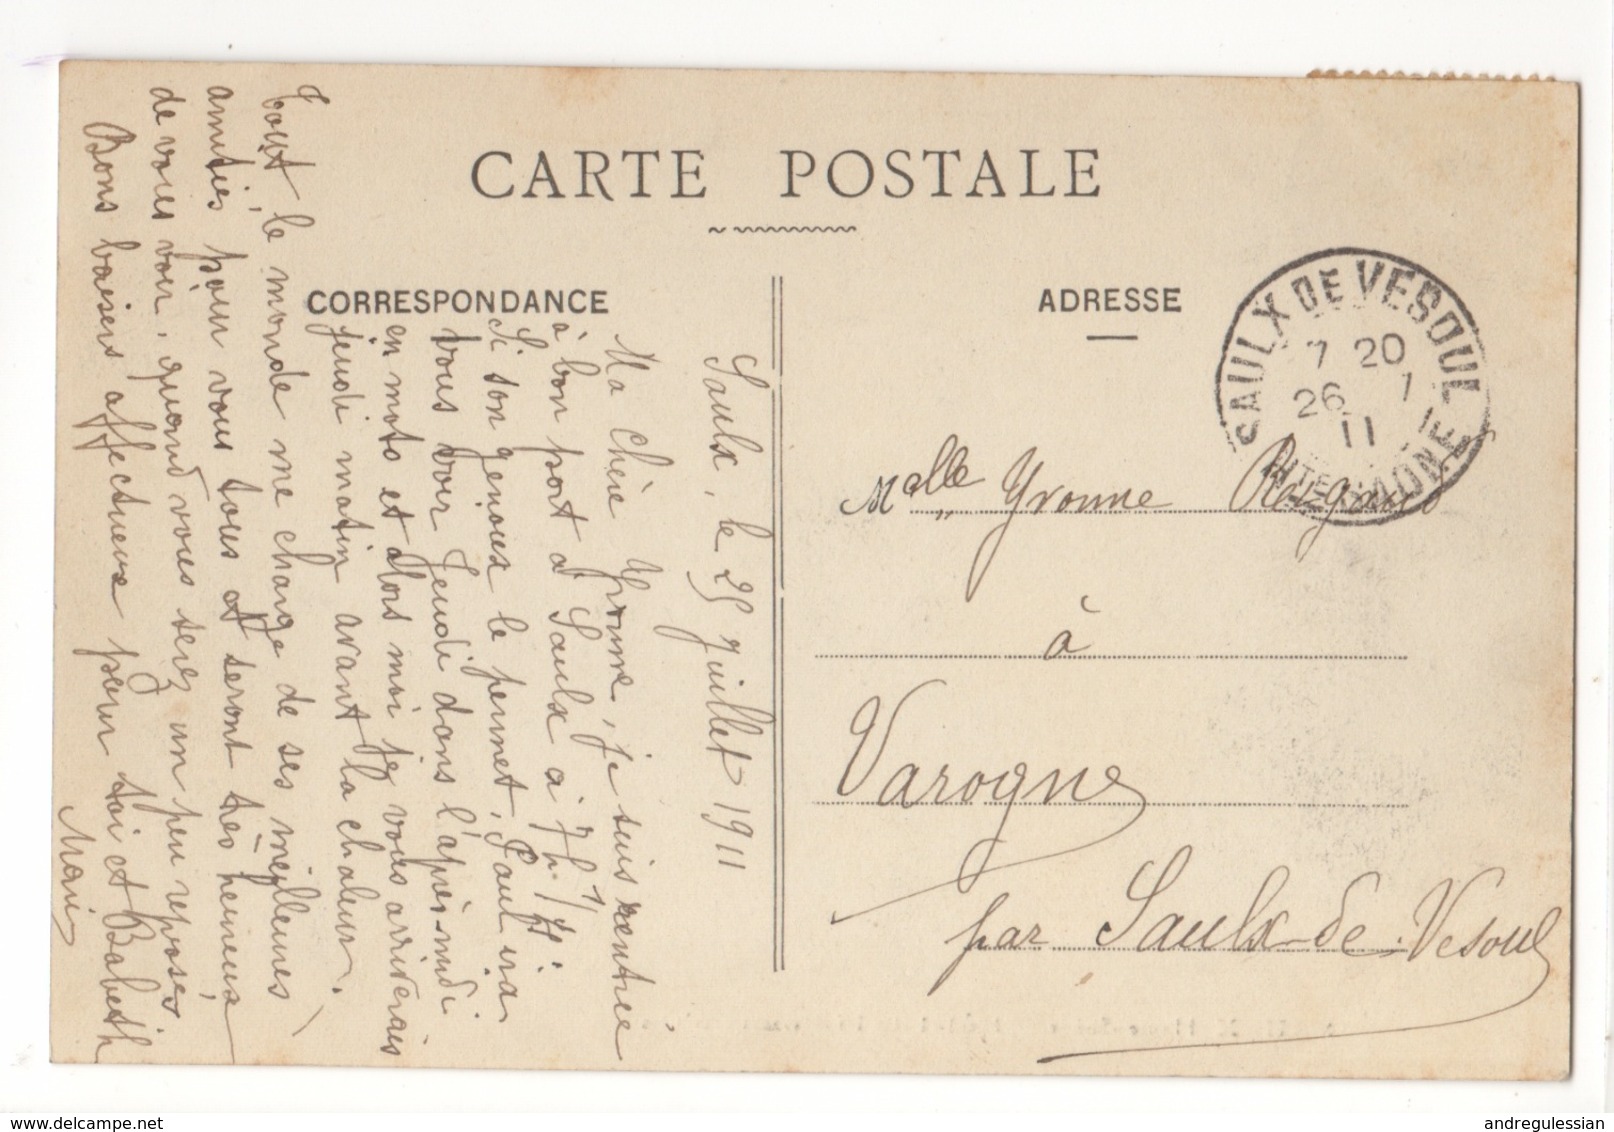 CARTE POSTALE
CORRESPONDANCE
ADRESSE
SAULX DE VESOUL
7 20
26 7
11
HTE SAONE
Saulx, le 25 juillet 1911
Ma chère Yvonne, je suis rentrée
à bon port à Saulx à 7h 1/4.
Si son genoux le permet, Paul ira
vous voir Jeudi dans l'après-midi
en moto et alors moi je vous arriverais
jeudi matin avant la chaleur.
Tout le monde me charge de ses meilleures
amitiés pour vous tous et seront très heureux
de vous voir, quand vous serez un peu reposés,
Bons baisers affectueux pour toi et Babeth
Marie
Melle Yvonne
à
Varogne
par Saulx-de-Vesoul
andregulessian